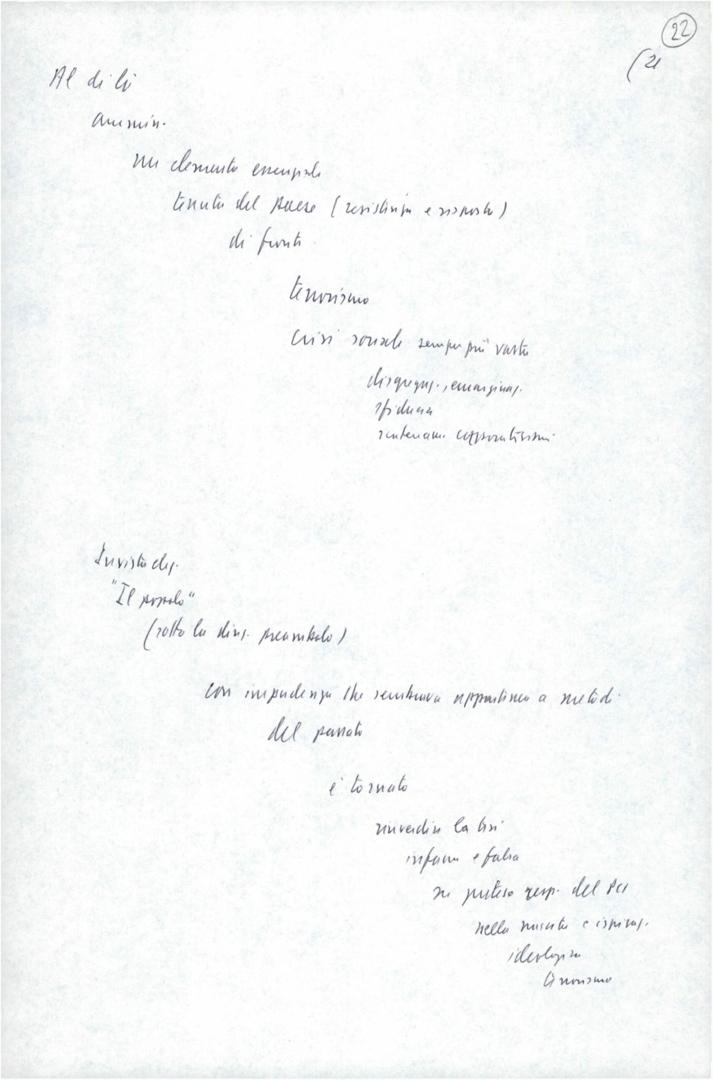 22
(21
Al di là
ammin.
un elemento essenziale
tenuta del Paese (resistenza e risposta)
di fronte
terrorismo
crisi sociale sempre più vasta
disgregaz., emarginaz.
sfiducia
scatenam. corporativismi
In vista elez.
"Il popolo"
(sotto la direz. preambolo)
con impudenza che sembrava appartenere a metodi
del passato
è tornato
rinverdire la tesi
infame e falsa
su pretesa resp. del PCI
nella nascita e ispiraz.
ideologica
terrorismo